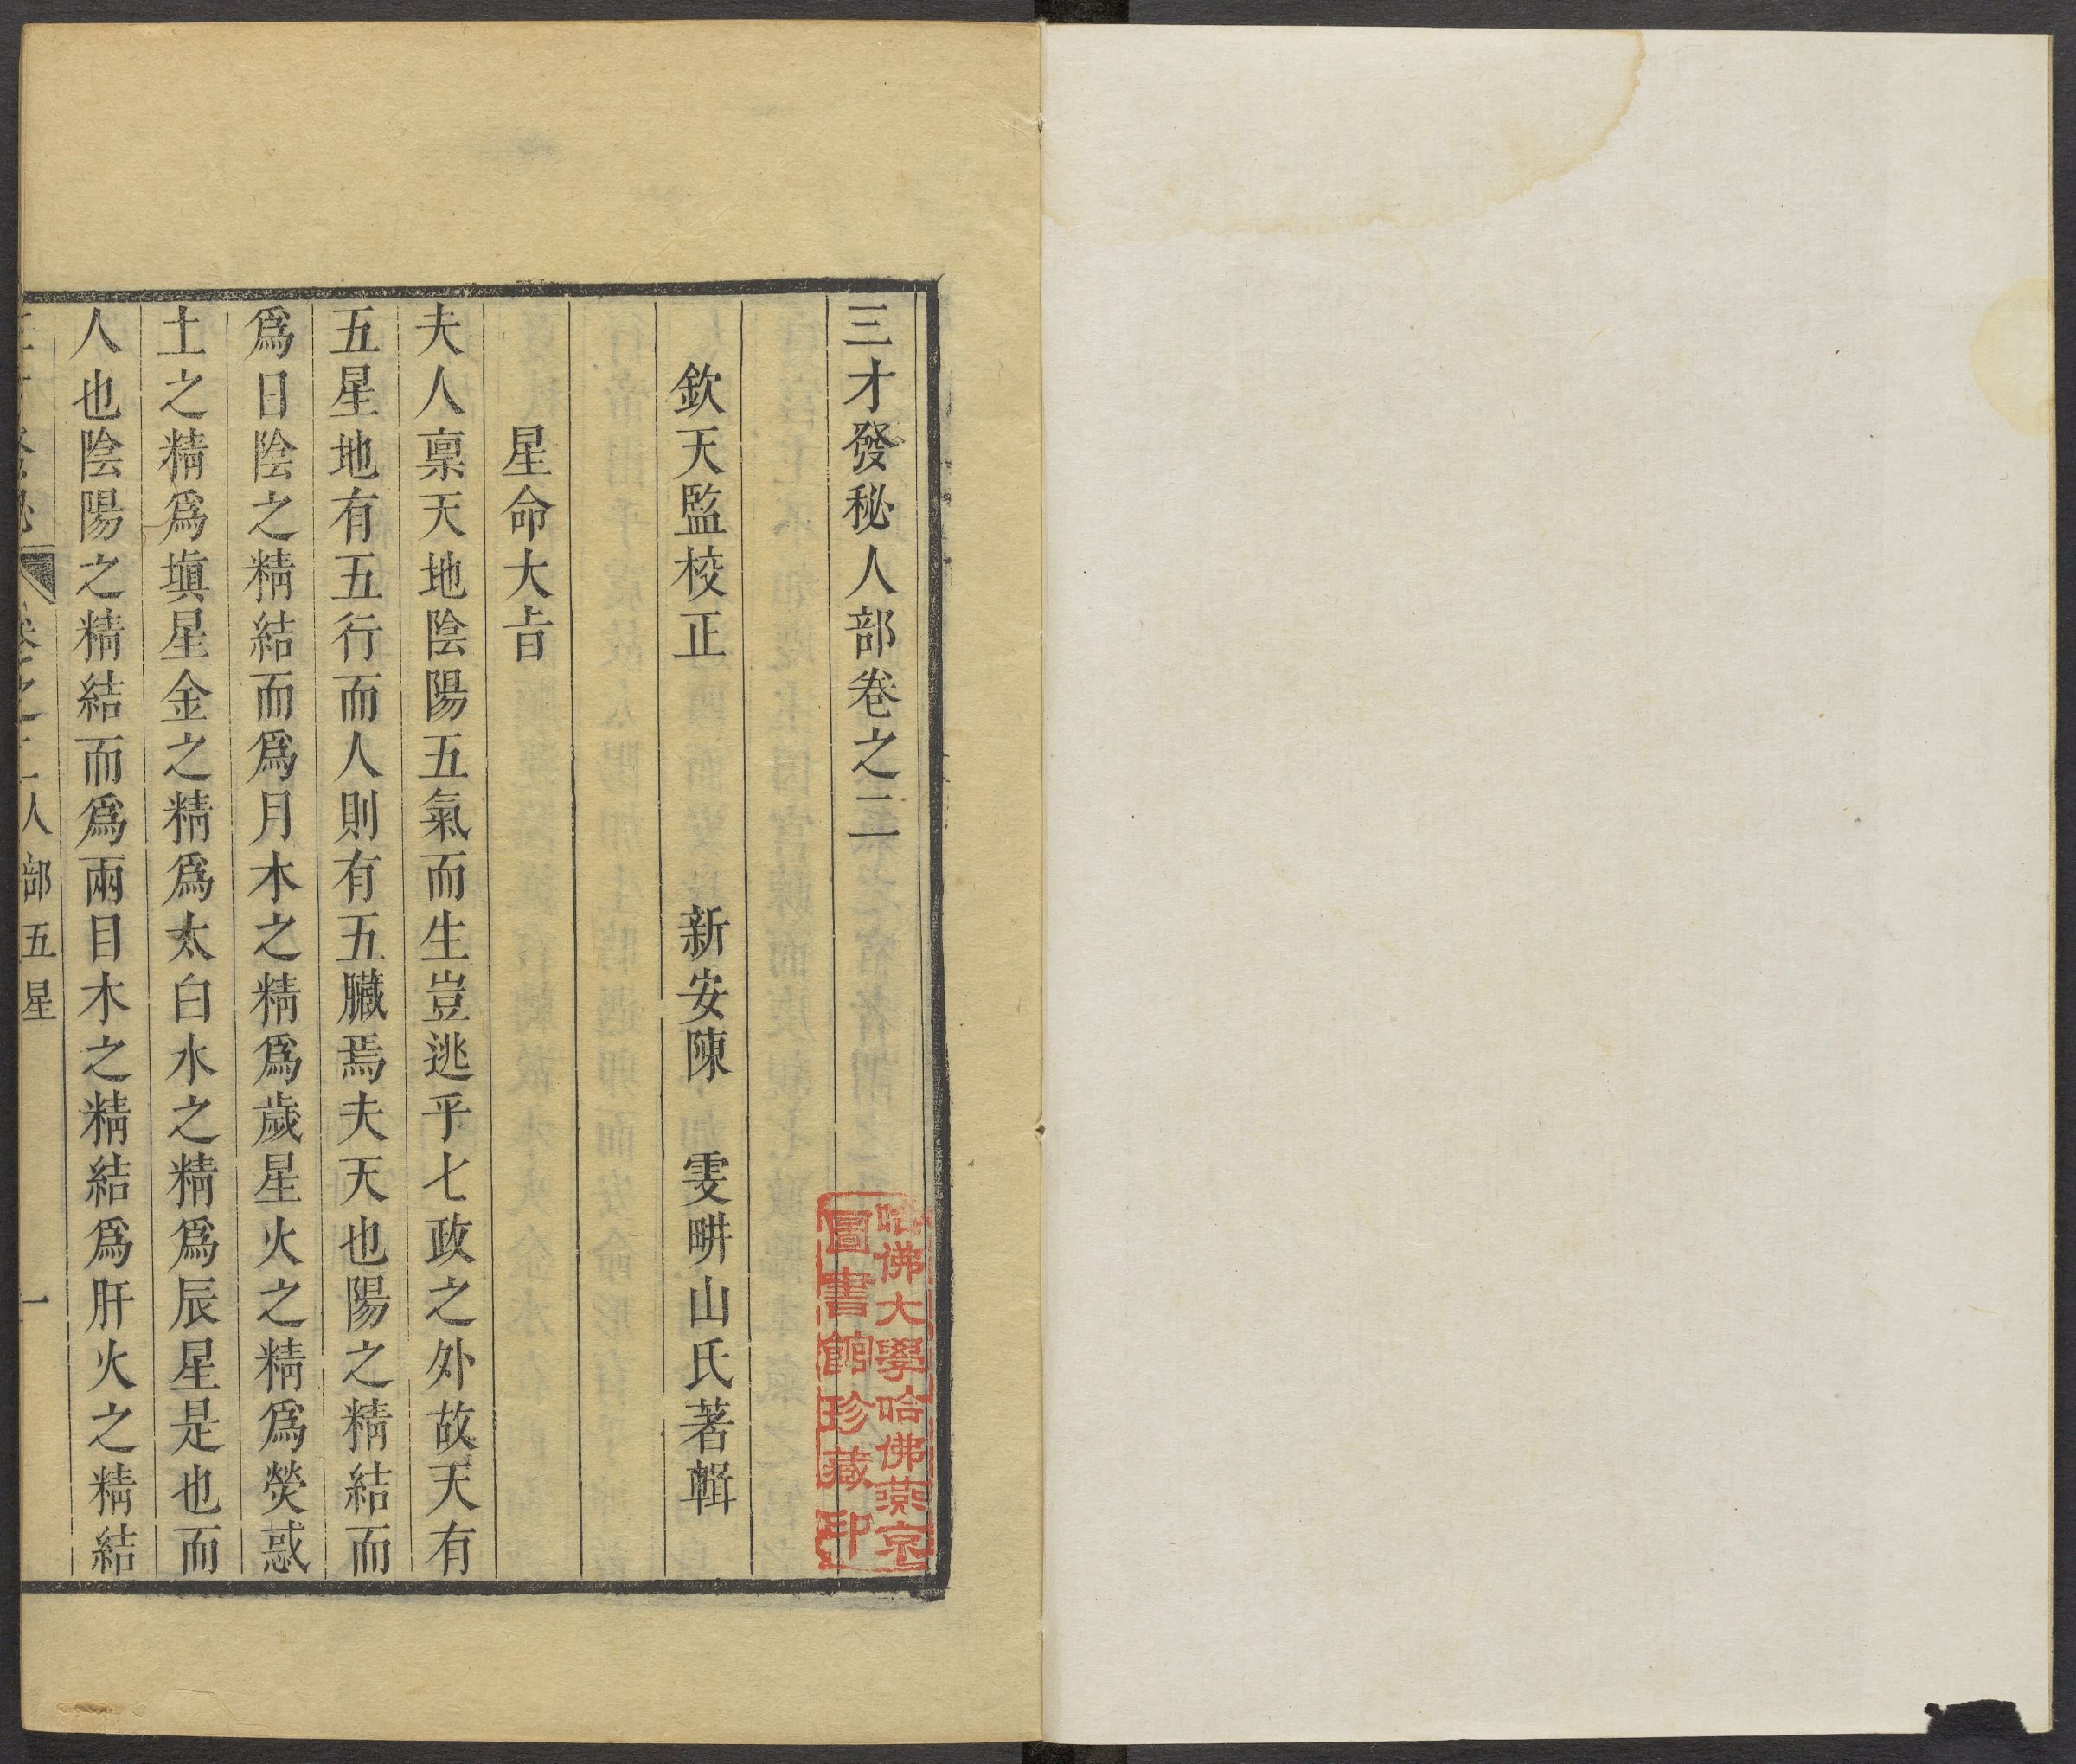 三才發秘人部卷之二
欽天監校正 新安陳 雯畊山氏著輯
星命大㫖
夫人稟天地陰陽五氣而生豈逃乎七政之外故天有
五星地有五行而人則有五臟焉夫天也陽之精結而
爲日陰之精結而爲月木之精爲歲星火之精爲熒惑
土之精爲塡星金之精爲太白水之精爲辰星是也而
人也陰陽之精結而爲兩目木之精結爲肝火之精結
卷之二人部五星 一
哈佛大學哈佛燕京
圖書館珍藏印